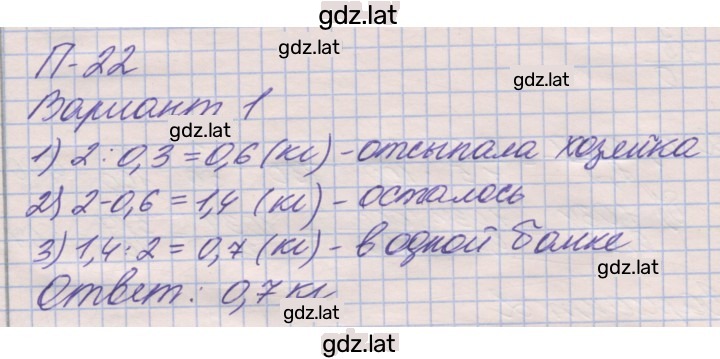 gdz.lat
gdz.lat
П-22
gdz.lat
Вариант 1
gdz.lat
1) 2 : 0,3 = 0,6 (кг) - отсыпала хозяйка
2) 2 - 0,6 = 1,4 (кг) - осталось
3) 1,4 : 2 = 0,7 (кг) - в одной банке
gdz.lat
Ответ: 0,7 кг
gdz.lat
gdz.lat